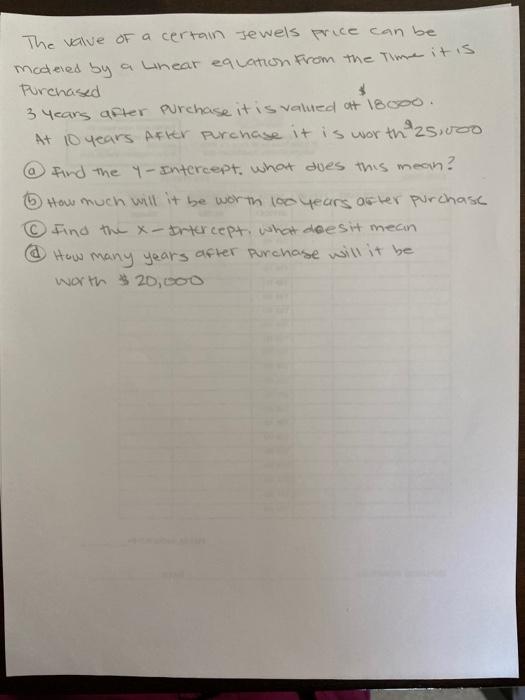 The value of a certain Jewels price can be
modeled by a Linear equation From the Time it is
Purchased
3 years after purchase it is valued at $18000.
At 10 years After Purchase it is worth $25,000
(a) Find the Y-Intercept. what does this mean?
(b) How much will it be worth 100 years after purchase
(c) Find the x-Intercept, what does it mean
(d) How many years after Purchase will it be
worth $20,000